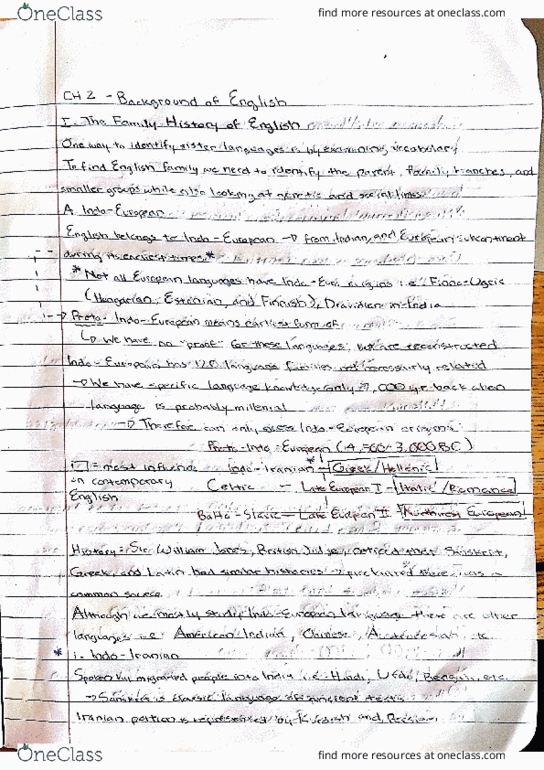 OneClass
find more resources at oneclass.com
CH 2 - Background of English
I. The Family History of English
One way to identify sister languages is by examining vocabulary
To find English family we need to identify the parent, family branches, and
smaller groups while also looking at genetic and social links
A. Indo-European
English belongs to Indo-European → from Indian, and European subcontinent
during its earliest times*
*Not all European languages have Indo-Euro origins i.e. Finno-Ugric
(Hungarian, Estonian, and Finnish), Dravidian in India
→ Proto-Indo-European means earliest form of
↳ We have no "probe" for these languages, but are reconstructed
Indo-European has language families not necessarily related
→ We have specific language knowledge only ,000 yr back when
language is probably millenial
→ Therefor can only Indo-European origins
Proto-Indo-European (4,500-3,000 BC)
= most influence Indo-Iranian - Greek/Hellenic
in contemporary Celtic - Late European I - Italic/Romance
English
Balto-Slavic - Late European II Northwest European
History: Sir William Jones, British Judge, noticed that Sanskrit,
Greek, and Latin had similar histories → there was
common source
Although we mostly study Indo-European language there are other
languages i.e. American Indian, Chinese, etc.
* i. Indo-Iranian
Spoken by migrated people into India i.e. Hindi, Urdu, Bengali, etc.
→ Sanskrit is classic language of ancient texts
Iranian portion is represented by Kurdish and Persian
OneClass
find more resources at oneclass.com